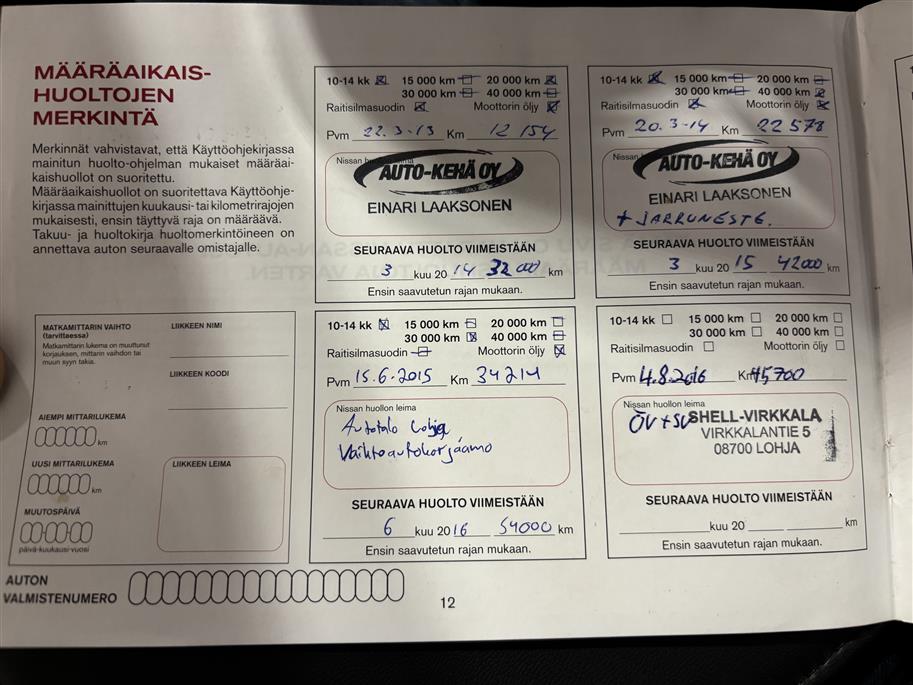 MÄÄRÄAIKAIS-
HUOLTOJEN
MERKINTÄ
Merkinnät vahvistavat, että Käyttöohjekirjassa
mainitun huolto-ohjelman mukaiset määräai-
kaishuollot on suoritettu.
Määräaikaishuollot on suoritettava Käyttöohje-
kirjassa mainittujen kuukausi- tai kilometrirajojen
mukaisesti, ensin täyttyvä raja on määräävä.
Takuu- ja huoltokirja huoltomerkintöineen on
annettava auton seuraavalle omistajalle.
10-14 kk 15 000 km 20 000 km
30 000 km 40 000 km
Raitisilmasuodin Moottorin öljy
Pvm 22.3-13 Km 12 154
Nissan huollon leima
AUTO-KEHÄ OY
EINARI LAAKSONEN
SEURAAVA HUOLTO VIIMEISTÄÄN
3 kuu 20 14 32000 km
Ensin saavutetun rajan mukaan.
10-14 kk 15 000 km 20 000 km
30 000 km 40 000 km
Raitisilmasuodin Moottorin öljy
Pvm 20.3-14 Km 22 578
Nissan
AUTO-KEHÄ OY
EINARI LAAKSONEN
+ JARRUNESTE.
SEURAAVA HUOLTO VIIMEISTÄÄN
3 kuu 20 15 42000 km
Ensin saavutetun rajan mukaan.
MATKAMITTARIN VAIHTO
(tarvittaessa)
Matkamittarin lukema on muuttunut
korjauksen, mittarin vaihdon tai
muun syyn takia.
AIEMPI MITTARILUKEMA
km
UUSI MITTARILUKEMA
km
MUUTOSPÄIVÄ
päivä-kuukausi-vuosi
LIIKKEEN NIMI
LIIKKEEN KOODI
LIIKKEEN LEIMA
10-14 kk 15 000 km 20 000 km
30 000 km 40 000 km
Raitisilmasuodin Moottorin öljy
Pvm 15.6-2015 Km 34214
Nissan huollon leima
Autotalo Lohja
Vaihtoautokorjaamo
SEURAAVA HUOLTO VIIMEISTÄÄN
6 kuu 20 16 54000 km
Ensin saavutetun rajan mukaan.
10-14 kk 15 000 km 20 000 km
30 000 km 40 000 km
Raitisilmasuodin Moottorin öljy
Pvm 4.8.2016 Km 45700
Nissan huollon leima
ÖV+SV SHELL-VIRKKALA
VIRKKALANTIE 5
08700 LOHJA
SEURAAVA HUOLTO VIIMEISTÄÄN
kuu 20 km
Ensin saavutetun rajan mukaan.
AUTON
VALMISTENUMERO
12